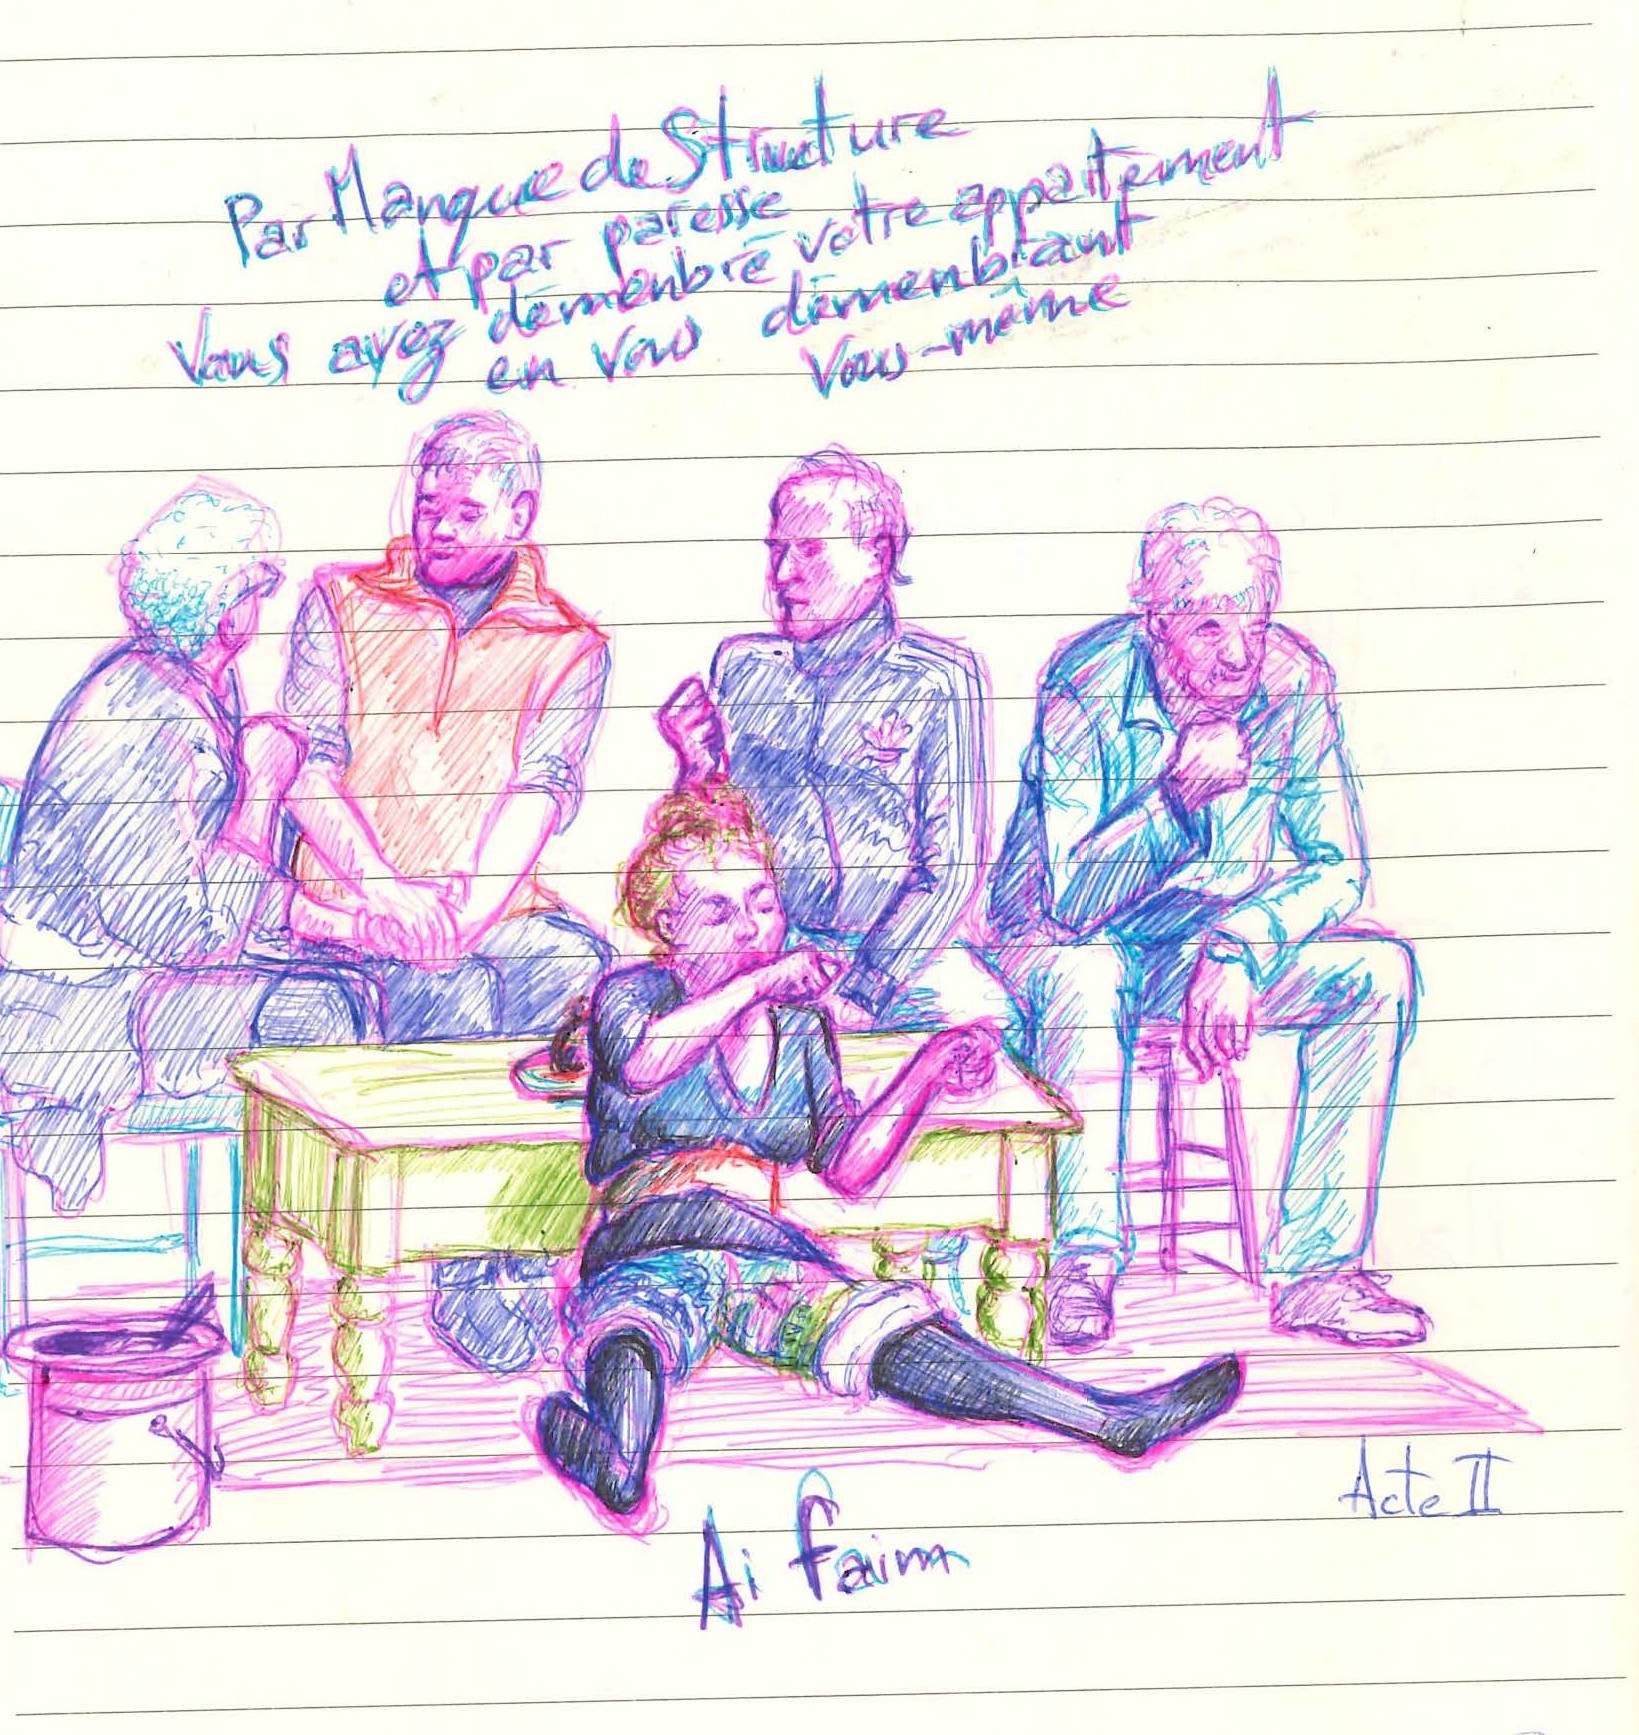 Par Manque de Structure
et par paresse
Vous avez démenbré votre appartement
en vous démenbrant
Vous-même
Ai faim
Acte II